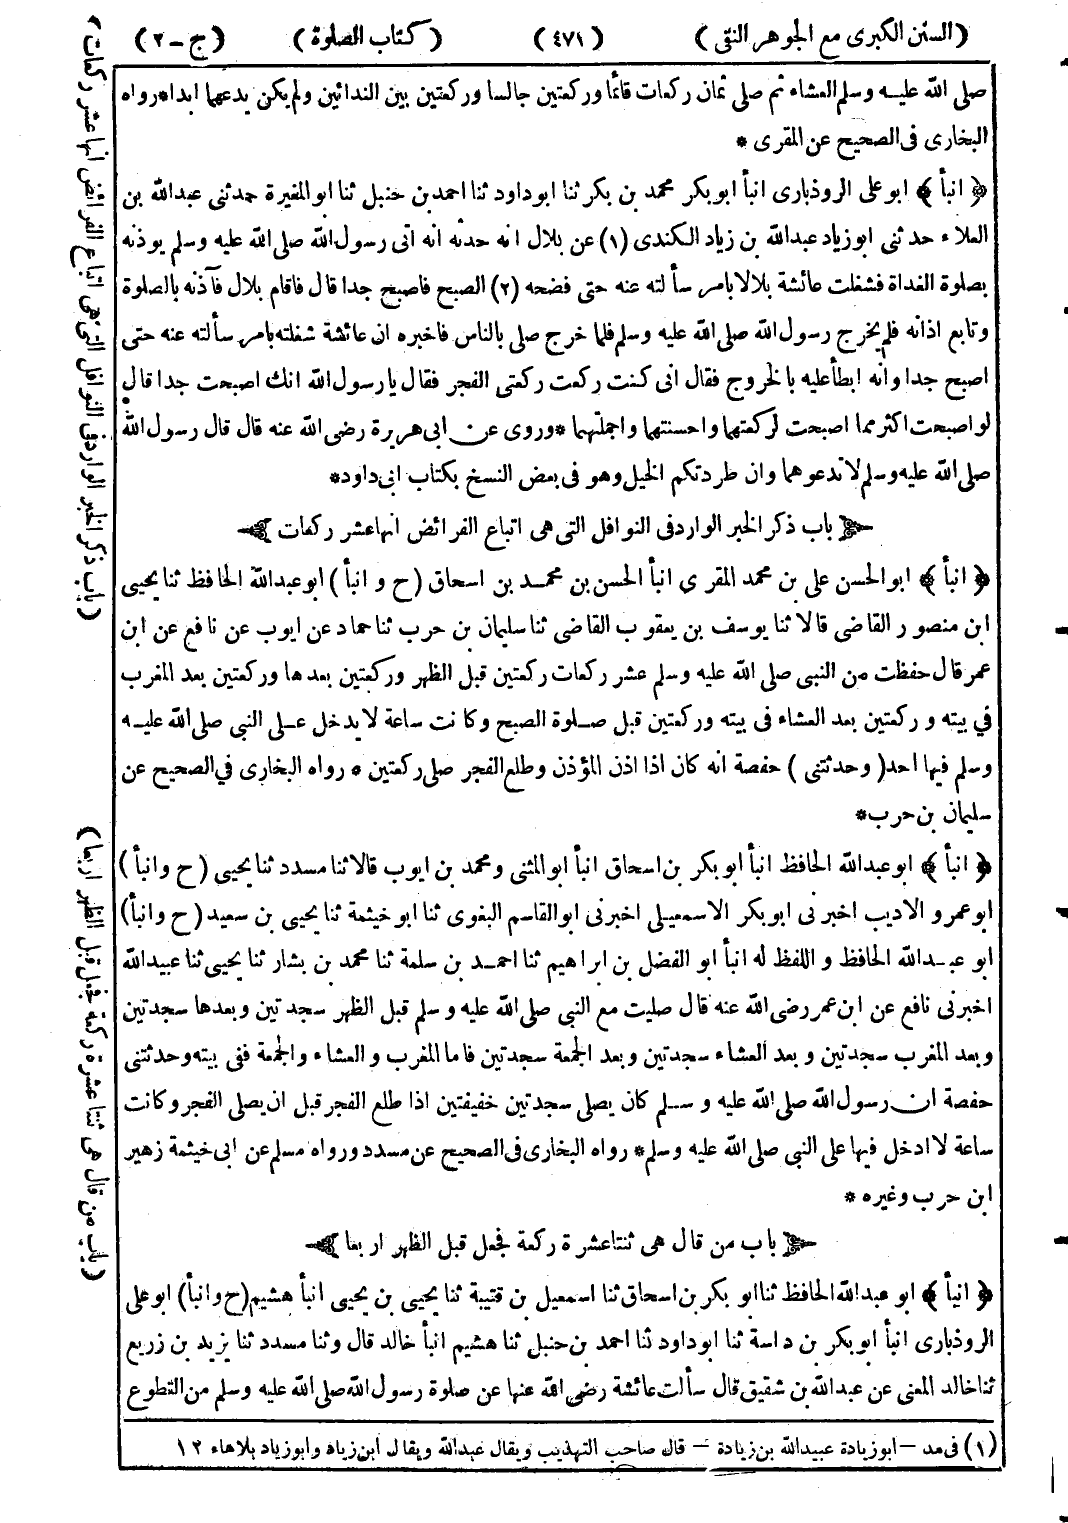 (السنن الكبرى مع الجوهر النقى) (٤٧١) (كتاب الصلوة) (ج-٢)
صلى الله عليه وسلم العشاء ثم صلى ثمان ركعات قائما وركعتين جالسا وركعتين بين الندائين ولم يكن يدعهما ابدا*رواه
البخارى فى الصحيح عن المقرى *
﴿ انبأ ﴾ ابو على الروذبارى انبأ ابوبكر محمد بن بكر ثنا ابو داود ثنا احمد بن حنبل ثنا ابو المغيرة حدثنى عبدالله بن
العلاء حدثنى ابو زياد عبدالله بن زياد الكندى (١) عن بلال انه حدثه انه اتى رسول الله صلى الله عليه وسلم يوذنه
بصلوة الغداة فشغلت عائشة بلالا بامر سألته عنه حتى فضحه (٢) الصبح فاصبح جدا قال فاقام بلال فآذنه بالصلوة
وتابع اذانه فلم يخرج رسول الله صلى الله عليه وسلم فلما خرج صلى بالناس فاخبره ان عائشة شغلته بامر سألته عنه حتى
اصبح جدا وانه ابطأ عليه بالخروج فقال انى كنت ركعت ركعتى الفجر فقال يا رسول الله انك اصبحت جدا قال
لو اصبحت اكثر مما اصبحت لركعتهما واحسنتهما واجملتهما *وروى عن ابى هريرة رضى الله عنه قال قال رسول الله
صلى الله عليه وسلم لا تدعوهما وان طردتكم الخيل وهو فى بعض النسخ بكتاب ابى داود*
﴿ باب ذكر الخبر الوارد فى النوافل التى هى اتباع الفرائض انها عشر ركعات ﴾
﴿ انبأ ﴾ ابو الحسن على بن محمد المقرى انبأ الحسن بن محمد بن اسحاق (ح و انبأ) ابو عبدالله الحافظ ثنا يحيى
ابن منصور القاضى قالا ثنا يوسف بن يعقوب القاضى ثنا سليمان بن حرب ثنا حماد عن ايوب عن نافع عن ابن
عمر قال حفظت من النبى صلى الله عليه وسلم عشر ركعات ركعتين قبل الظهر وركعتين بعدها وركعتين بعد المغرب
في بيته و ركعتين بعد العشاء فى بيته وركعتين قبل صلوة الصبح وكانت ساعة لا يدخل على النبى صلى الله عليه
وسلم فيها احد (وحدثتنى) حفصة انه كان اذا اذن المؤذن وطلع الفجر صلى ركعتين * رواه البخارى في الصحيح عن
سليمان بن حرب*
﴿ انبأ ﴾ ابو عبدالله الحافظ انبأ ابو بكر بن اسحاق انبأ ابو المثنى ومحمد بن ايوب قالا ثنا مسدد ثنا يحيى (ح وانبأ)
ابو عمرو الاديب اخبرنى ابوبكر الاسمعيلى اخبرنى ابو القاسم البغوى ثنا ابو خيثمة ثنا يحيى بن سعيد (ح وانبأ)
ابو عبدالله الحافظ و اللفظ له انبأ ابو الفضل بن ابراهيم ثنا احمد بن سلمة ثنا محمد بن بشار ثنا يحيى ثنا عبيدالله
اخبرنى نافع عن ابن عمر رضى الله عنه قال صليت مع النبى صلى الله عليه وسلم قبل الظهر سجدتين وبعدها سجدتين
وبعد المغرب سجدتين و بعد العشاء سجدتين وبعد الجمعة سجدتين فاما المغرب و العشاء والجمعة ففى بيته وحدثتنى
حفصة ان رسول الله صلى الله عليه وسلم كان يصلى سجدتين خفيفتين اذا طلع الفجر قبل ان يصلى الفجر وكانت
ساعة لا ادخل فيها على النبى صلى الله عليه وسلم* رواه البخارى فى الصحيح عن مسدد ورواه مسلم عن ابى خيثمة زهير
ابن حرب وغيره *
﴿ باب من قال هى ثنتا عشرة ركعة فجعل قبل الظهر اربعا ﴾
﴿ انبأ ﴾ ابو عبدالله الحافظ ثنا ابو بكر بن اسحاق ثنا اسمعيل بن قتيبة ثنا يحيى بن يحيى انبأ هشيم (ح وانبأ) ابو على
الروذبارى انبأ ابو بكر بن داسة ثنا ابو داود ثنا احمد بن حنبل ثنا هشيم انبأ خالد قال وثنا مسدد ثنا يزيد بن زريع
ثنا خالد المعنى عن عبدالله بن شقيق قال سألت عائشة رضى الله عنها عن صلوة رسول الله صلى الله عليه وسلم من التطوع
(١) فى مد - ابو زيادة عبيدالله بن زيادة - قال صاحب التهذيب ويقال عبدالله ويقال ابن زياد وابو زياد بلاهاء ١٢
(باب ذكر الخبر الوارد فى النوافل التى هى اتباع الفرائض انها عشر ركعات)
(باب من قال هى ثنتا عشرة ركعة فجعل قبل الظهر اربعا)